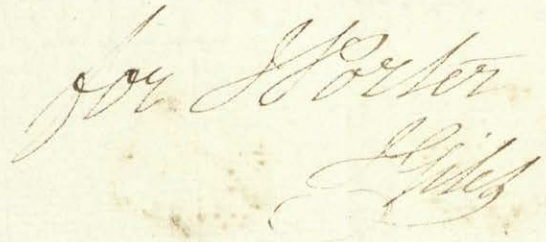 for J Porter
J Giles